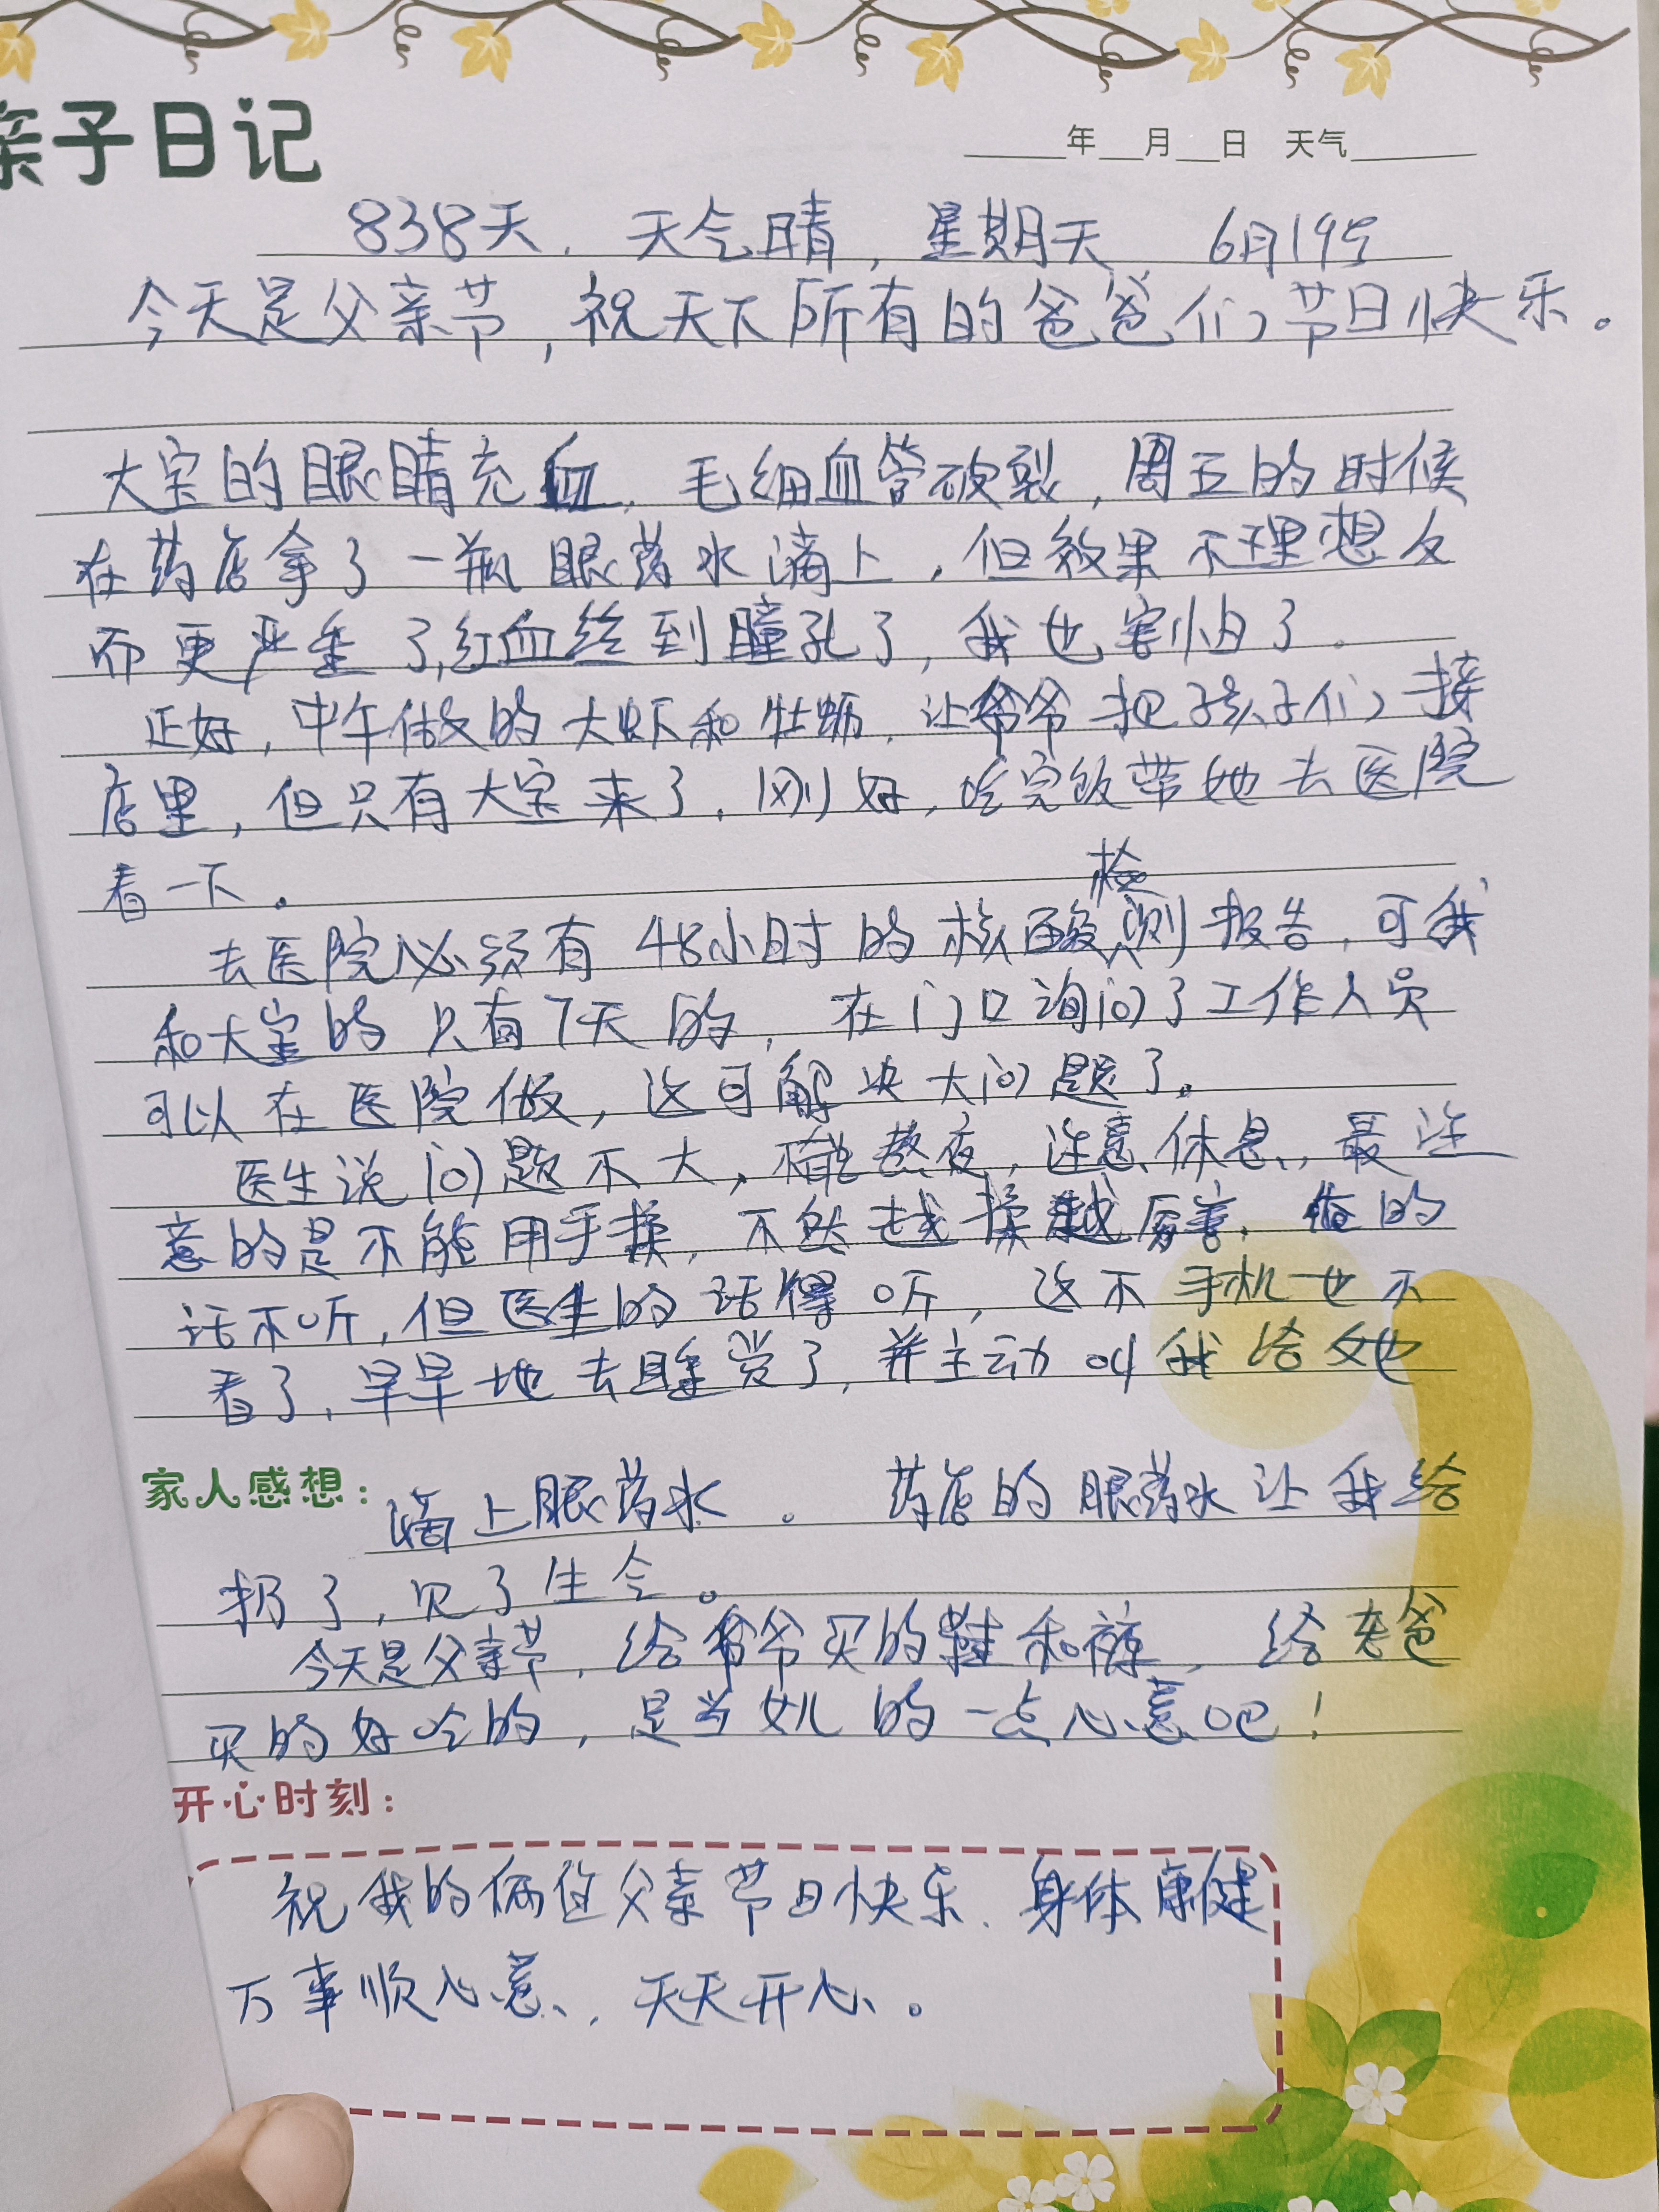 亲子日记
年 月 日 天气
838天. 天气晴, 星期天 6月19号
今天是父亲节, 祝天下所有的爸爸们节日快乐。
大宝的眼睛充血, 毛细血管破裂, 周五的时候
在药店拿了一瓶眼药水滴上, 但效果不理想反
而更严重了,红血丝到瞳孔了, 我也害怕了。
正好, 中午做的大虾和牡蛎, 让爷爷把孩子们接
店里, 但只有大宝来了. 刚好, 吃完饭带她去医院
看一下。
去医院必须有48小时的核酸检测报告, 可我
和大宝的只有7天的, 在门口询问了工作人员
可以在医院做, 这可解决大问题了。
医生说问题不大, 不能熬夜, 注意休息, 最注
意的是不能用手揉, 不然越揉越厉害. 俺的
话不听, 但医生的话得听, 这不手机也不
看了, 早早地去睡觉了, 并主动叫我给她
家人感想: 滴上眼药水。 药店的眼药水让我给
扔了, 见了生令。
今天是父亲节, 给爷爷买的鞋和裤, 给老爸
买的好吃的, 是当女儿的一点心意吧!
开心时刻:
祝我的俩位父亲节日快乐. 身体康健
万事顺心意, 天天开心。